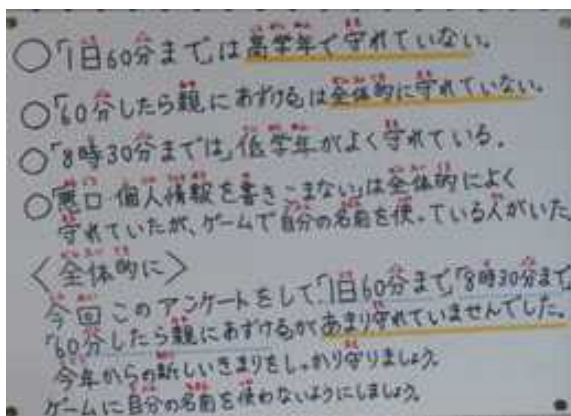 ○「1日60分まで」は高学年で守れていない。
○「60分したら親にあずける」は全体的に守れていない。
○「8時30分までは」、低学年がよく守れている。
○「悪口・個人情報を書きこまない」は全体的によく
守れていたが、ゲームで自分の名前を使っている人がいた。
〈全体的に〉
今回このアンケートをして「1日60分まで」「8時30分まで」
「60分したら親にあずける」があまり守れていませんでした。
今年からの新しいきまりをしっかり守りましょう。
ゲームに自分の名前を使わないようにしましょう。